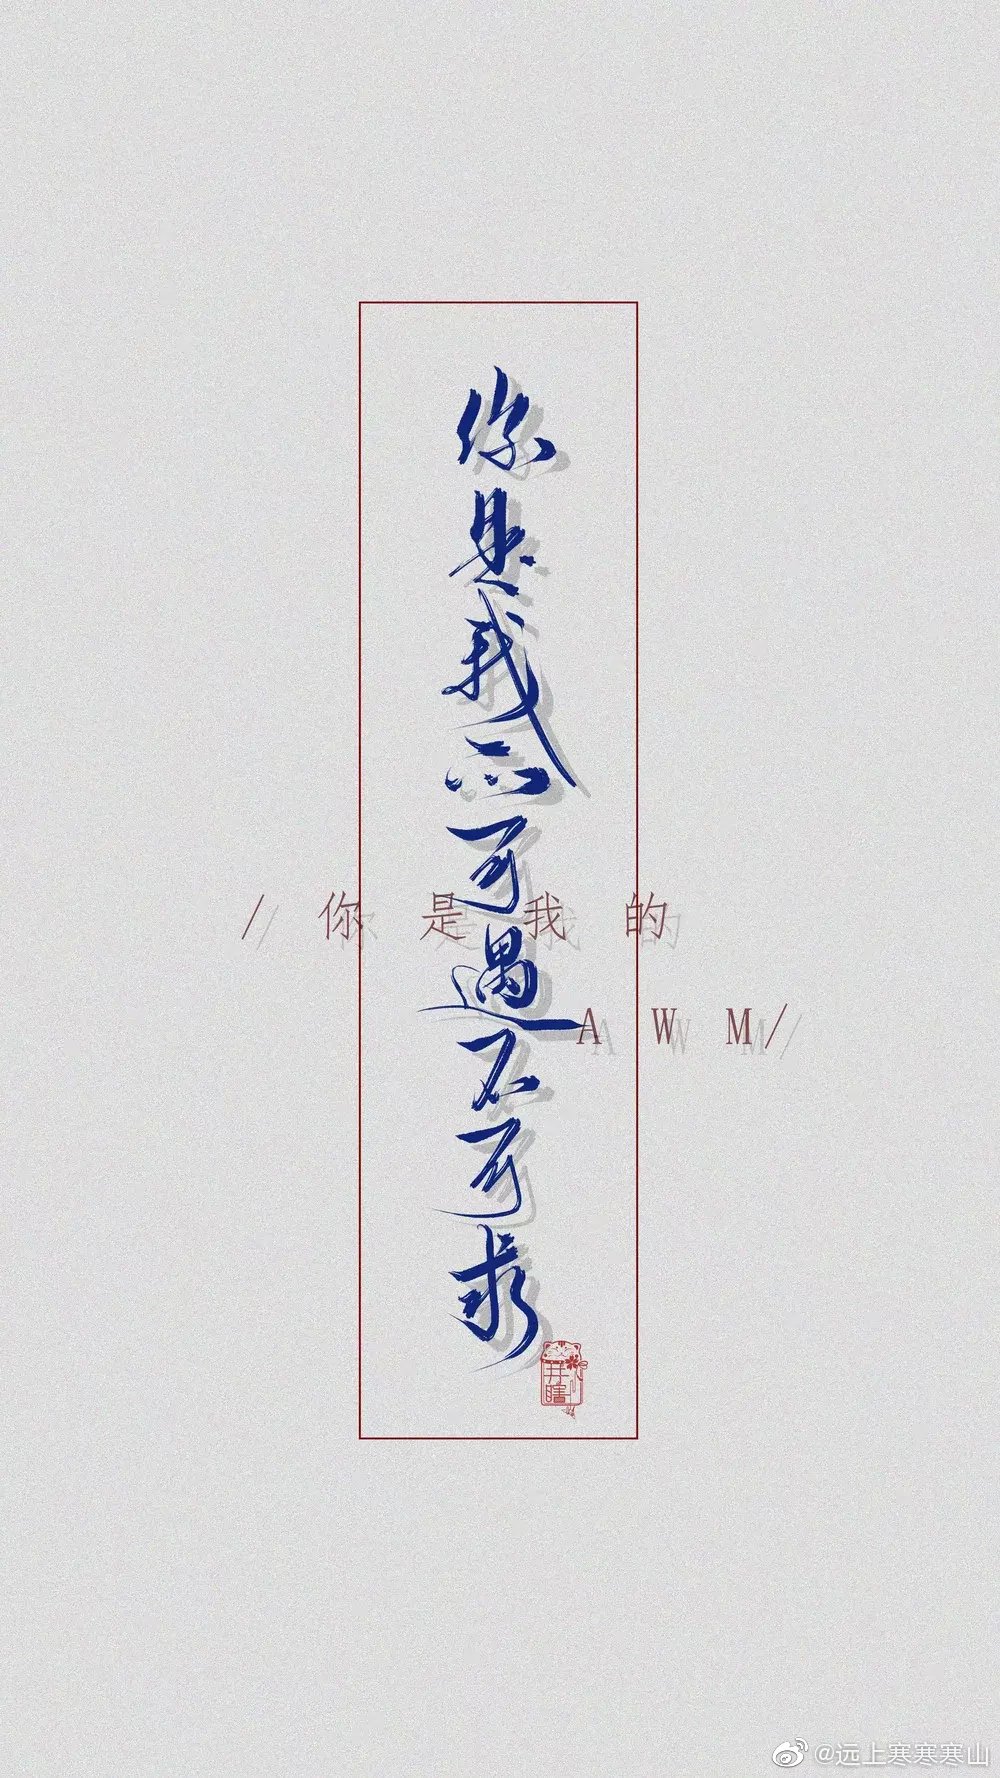 你是我的可遇不可求
/你是我的
AWM/
井瞎
@远上寒寒寒山